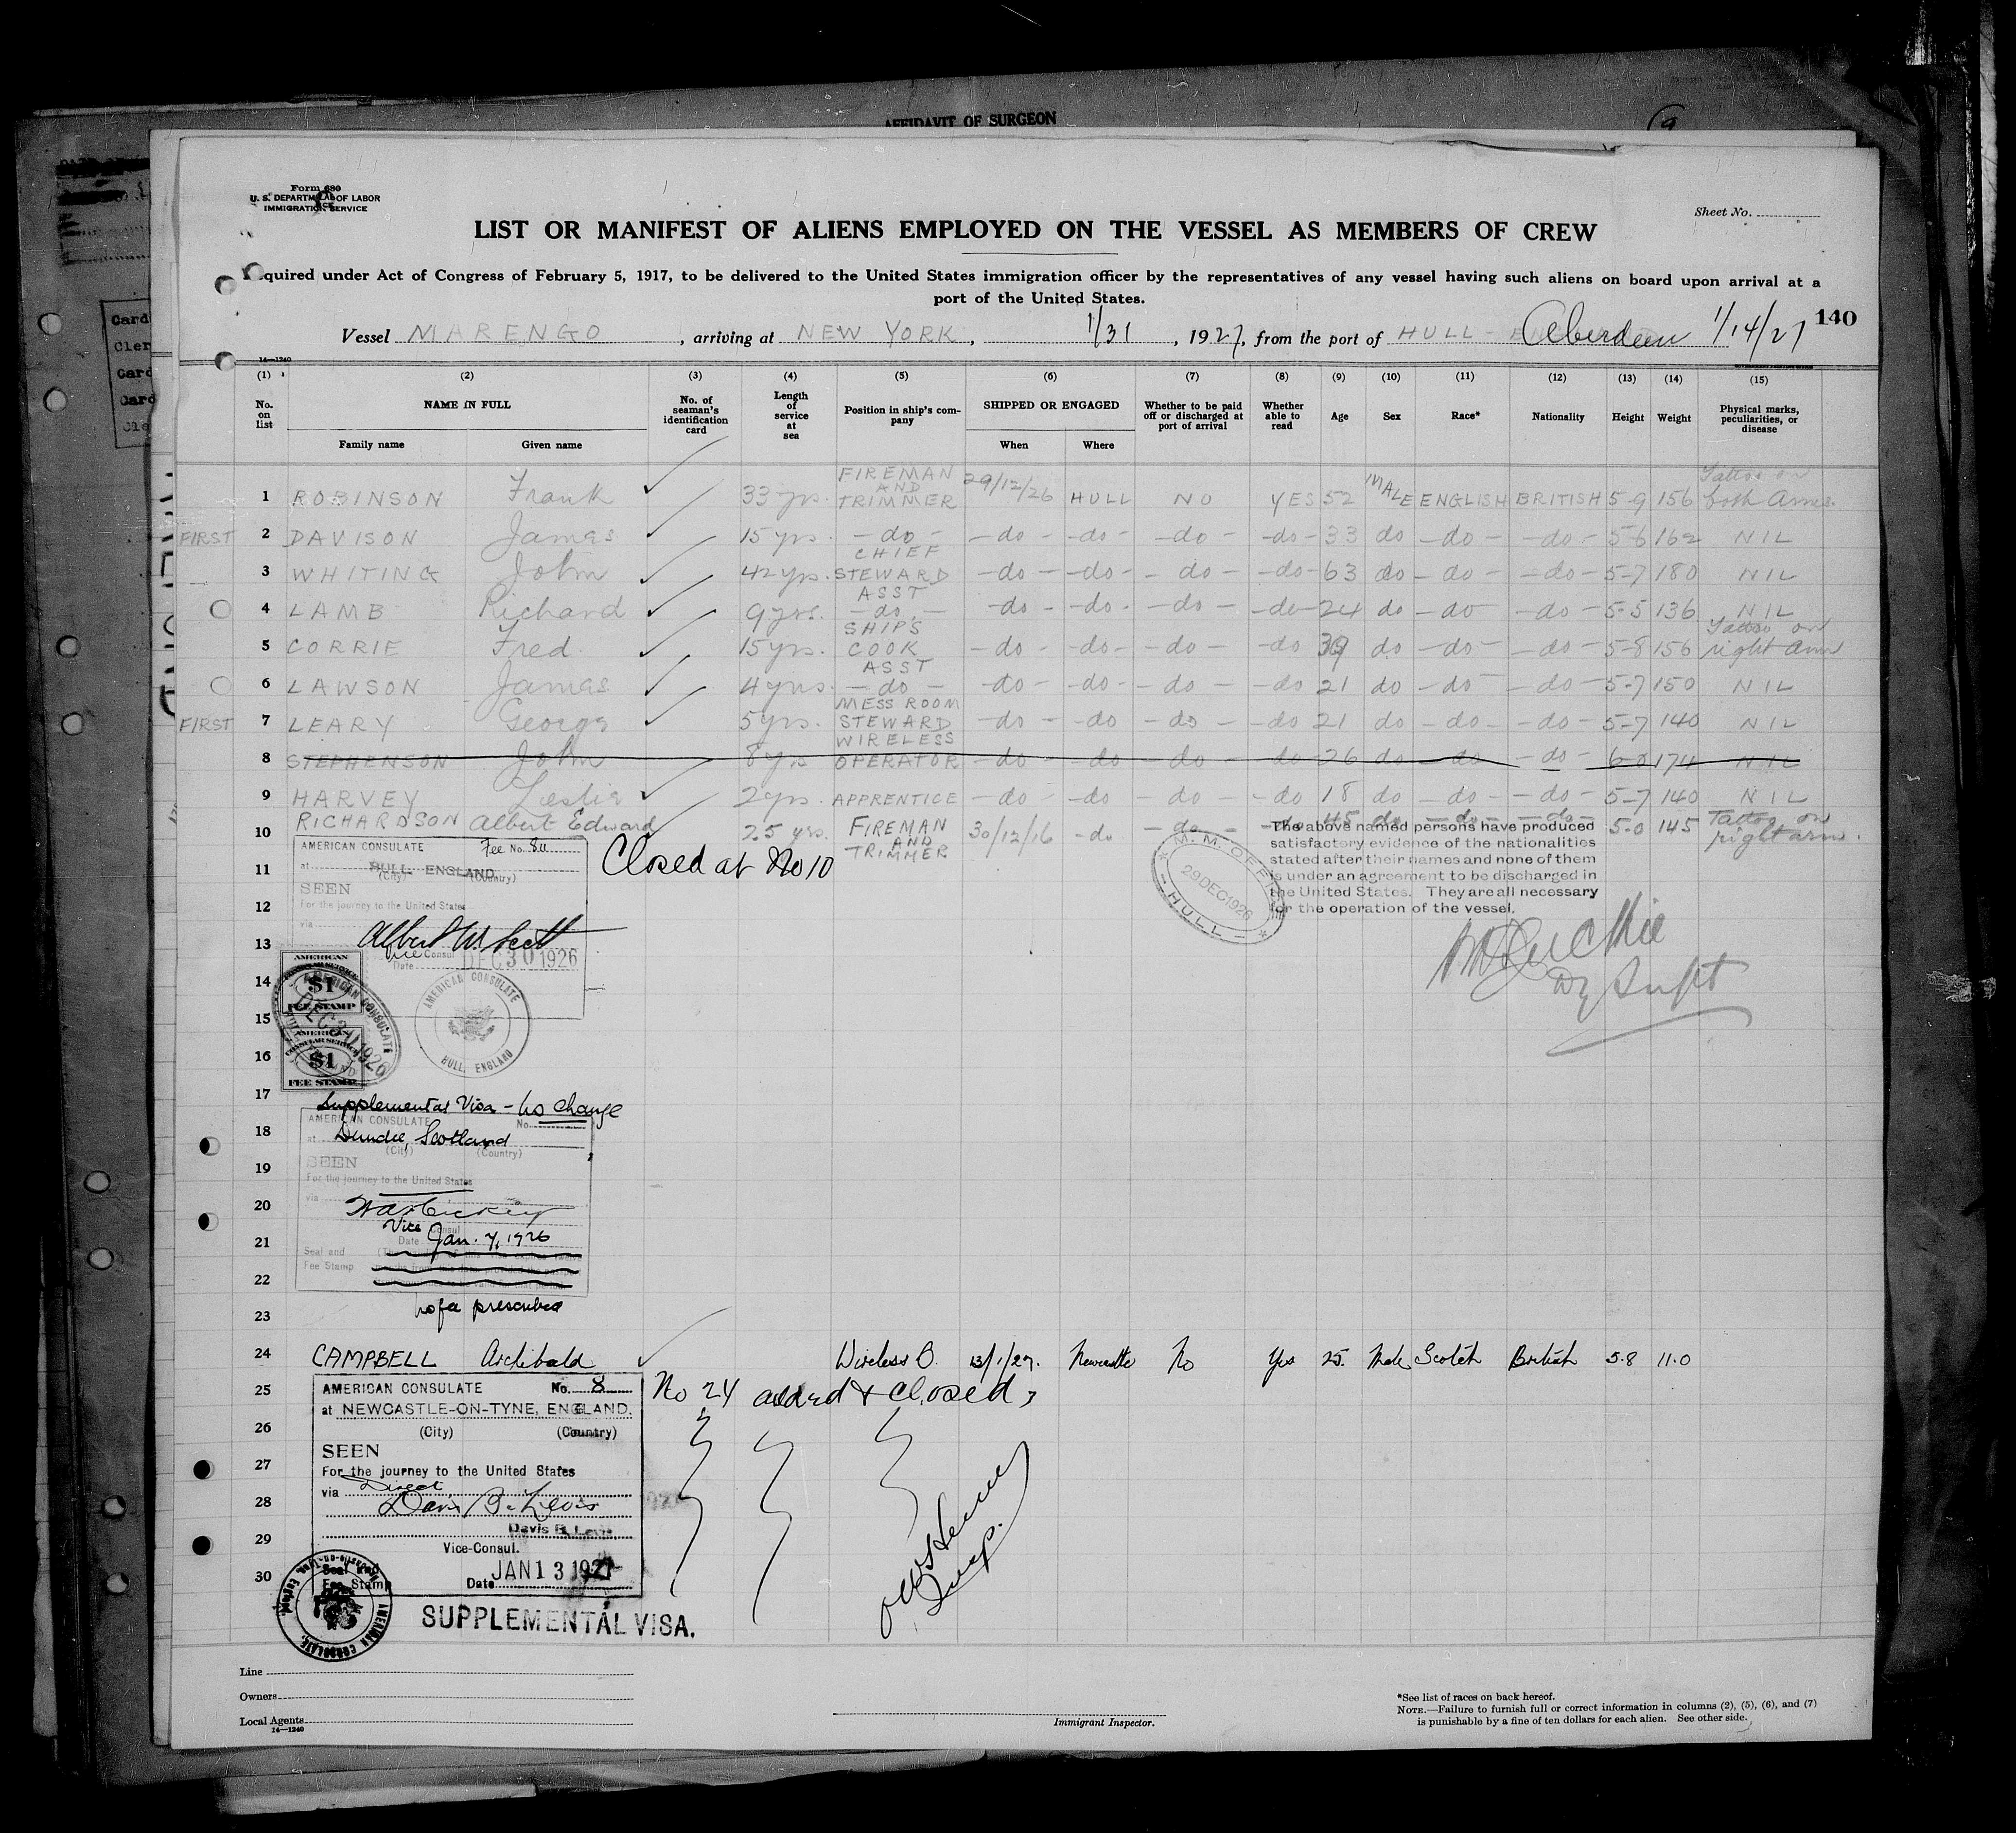 AFFIDAVIT OF SURGEON
Form 680
U. S. DEPARTMENT OF LABOR
IMMIGRATION SERVICE
Sheet No.
LIST OR MANIFEST OF ALIENS EMPLOYED ON THE VESSEL AS MEMBERS OF CREW
quired under Act of Congress of February 5, 1917, to be delivered to the United States immigration officer by the representatives of any vessel having such aliens on board upon arrival at a
port of the United States.
140
Vessel MARENGO, arriving at NEW YORK, 1/31, 1927, from the port of HULL - Aberdeen 1/14/27
14—1240
(1) (2) (3) (4) (5) (6) (7) (8) (9) (10) (11) (12) (13) (14) (15)
No. on list NAME IN FULL No. of seaman's identification card Length of service at sea Position in ship's company SHIPPED OR ENGAGED Whether to be paid off or discharged at port of arrival Whether able to read Age Sex Race* Nationality Height Weight Physical marks, peculiarities, or disease
Family name Given name When Where
1 ROBINSON Frank 33 yrs. FIREMAN AND TRIMMER 29/12/26 HULL NO YES 52 MALE ENGLISH BRITISH 5-9 156 Tattoo on both Arms.
FIRST 2 DAVISON James 15 yrs. -do- -do- -do- -do- -do- 33 do -do- -do- 5-6 162 NIL
3 WHITING John 42 yrs. CHIEF STEWARD -do- -do- -do- -do- 63 do -do- -do- 5-7 180 NIL
4 LAMB Richard 9 yrs. ASST -do- -do- -do- -do- -do- 24 do -do- -do- 5-5 136 NIL
5 CORRIE Fred. 15 yrs. SHIP'S COOK -do- -do- -do- -do 39 do -do- -do- 5-8 156 Tattoo on right arm
6 LAWSON James 4 yrs. ASST -do- -do- -do- -do- -do 21 do -do- -do- 5-7 150 NIL
FIRST 7 LEARY George 5 yrs. MESS ROOM STEWARD -do- -do -do- -do 21 do -do- -do- 5-7 140 NIL
8 STEPHENSON John 8 yrs WIRELESS OPERATOR -do- -do -do- -do 26 do -do- -do- 6-0 174 NIL
9 HARVEY Leslie 2 yrs. APPRENTICE -do- -do -do- -do 18 do -do- -do- 5-7 140 NIL
10 RICHARDSON Albert Edward 25 yrs. FIREMAN AND TRIMMER 30/12/16 -do -do- -do 45 do -do- -do- 5-0 145 Tattoo on right arm.
AMERICAN CONSULATE Fee No. 811
at HULL, ENGLAND
(City) (Country)
SEEN
For the journey to the United States
via
Albert W. Scott
Vice Consul
Date DEC 30 1926
Closed at No 10
M. M. OFFICE
29 DEC 1926
HULL
The above named persons have produced
satisfactory evidence of the nationalities
stated after their names and none of them
is under an agreement to be discharged in
the United States. They are all necessary
for the operation of the vessel.
Dy Supt
11
12
13
14
15
16
AMERICAN
CONSULAR SERVICE
$1
FEE STAMP
AMERICAN
CONSULAR SERVICE
$1
FEE STAMP
AMERICAN CONSULATE
DEC 30 1926
AMERICAN CONSULATE
HULL, ENGLAND
17
Supplemental Visa - no change
AMERICAN CONSULATE No.
18
at Dundee, Scotland
(City) (Country)
19
SEEN
For the journey to the United States
via
20
Vice Consul
21
Date Jan. 7, 1926
Seal and
Fee Stamp
22
no fee prescribed
23
24 CAMPBELL Archibald Wireless O. 13/1/27. Newcastle No Yes 25. Male Scotch British 5.8 11.0
25
AMERICAN CONSULATE No. 8
at NEWCASTLE-ON-TYNE, ENGLAND.
(City) (Country)
No 24 added & closed
26
SEEN
27
For the journey to the United States
via Direct
28
Davis B. Levis
Davis B. Levis
29
Vice-Consul.
30
Seal and
Fee Stamp
Date JAN 13 1927
AMERICAN CONSULATE
Newcastle-on-Tyne, England.
SUPPLEMENTAL VISA.
Sup.
Line
Owners
Local Agents
14—1240
Immigrant Inspector.
*See list of races on back hereof.
NOTE.—Failure to furnish full or correct information in columns (2), (5), (6), and (7)
is punishable by a fine of ten dollars for each alien. See other side.